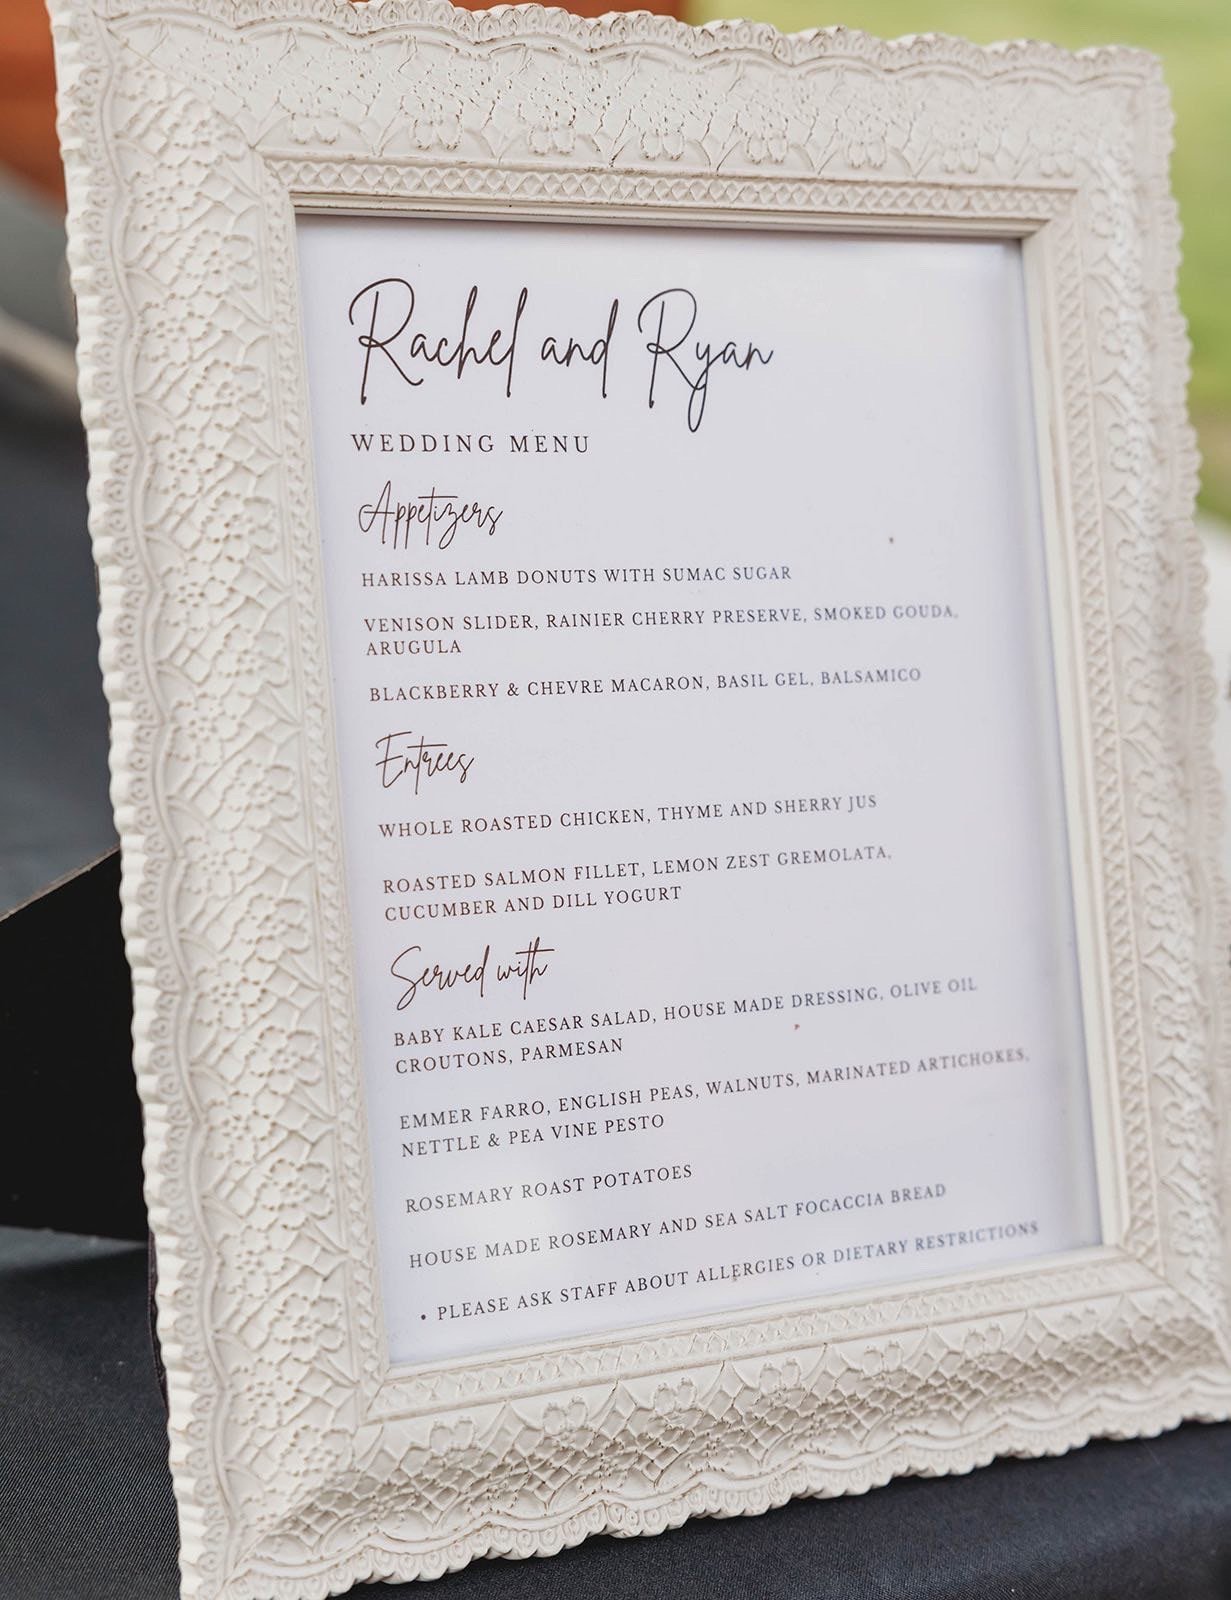 Rachel and Ryan
WEDDING MENU
Appetizers
HARISSA LAMB DONUTS WITH SUMAC SUGAR
VENISON SLIDER, RAINIER CHERRY PRESERVE, SMOKED GOUDA,
ARUGULA
BLACKBERRY & CHEVRE MACARON, BASIL GEL, BALSAMICO
Entrees
WHOLE ROASTED CHICKEN, THYME AND SHERRY JUS
ROASTED SALMON FILLET, LEMON ZEST GREMOLATA,
CUCUMBER AND DILL YOGURT
Served with
BABY KALE CAESAR SALAD, HOUSE MADE DRESSING, OLIVE OIL
CROUTONS, PARMESAN
EMMER FARRO, ENGLISH PEAS, WALNUTS, MARINATED ARTICHOKES,
NETTLE & PEA VINE PESTO
ROSEMARY ROAST POTATOES
HOUSE MADE ROSEMARY AND SEA SALT FOCACCIA BREAD
• PLEASE ASK STAFF ABOUT ALLERGIES OR DIETARY RESTRICTIONS